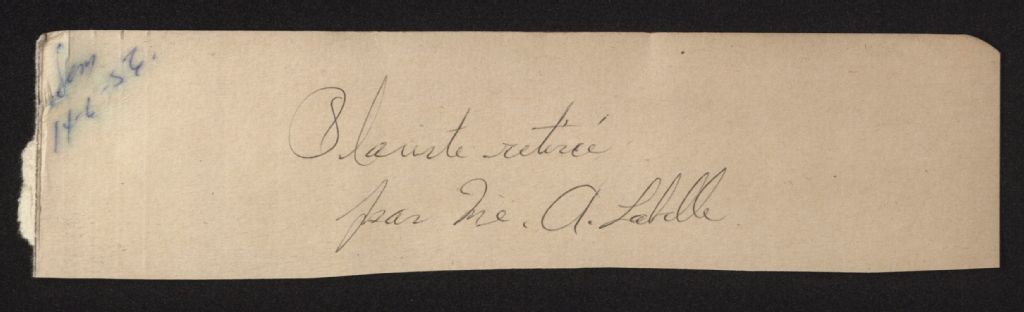 14-6-56.
Plainte retirée
par Me. A. Labelle